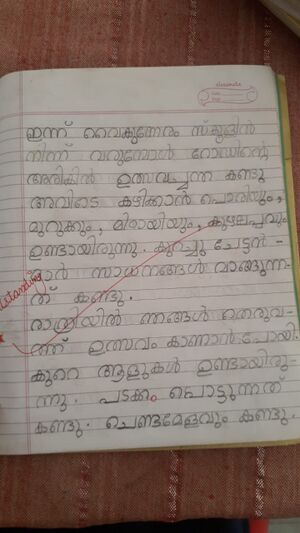 classmate
Date
Page
ഇന്ന് വൈകുന്നേരം സ്കൂളിൽ
നിന്ന് വരുമ്പോൾ റോഡിന്റെ
അരികിൽ ഉത്സവച്ചന്ത കണ്ടു
അവിടെ കഴിക്കാൻ പൊരിയും,
മുറുക്കും, മിഠായിയും, കുഴലപ്പവും
ഉണ്ടായിരുന്നു. കുറച്ചു ചേട്ടൻ-
മാർ സാധനങ്ങൾ വാങ്ങുന്ന-
ത് കണ്ടു.
രാത്രിയിൽ ഞങ്ങൾ തെരുവ-
ത്ത് ഉത്സവം കാണാൻ പോയി.
കുറെ ആളുകൾ ഉണ്ടായിരു-
ന്നു. പടക്കം പൊട്ടുന്നത്
കണ്ടു. ചെണ്ടമേളവും കണ്ടു.